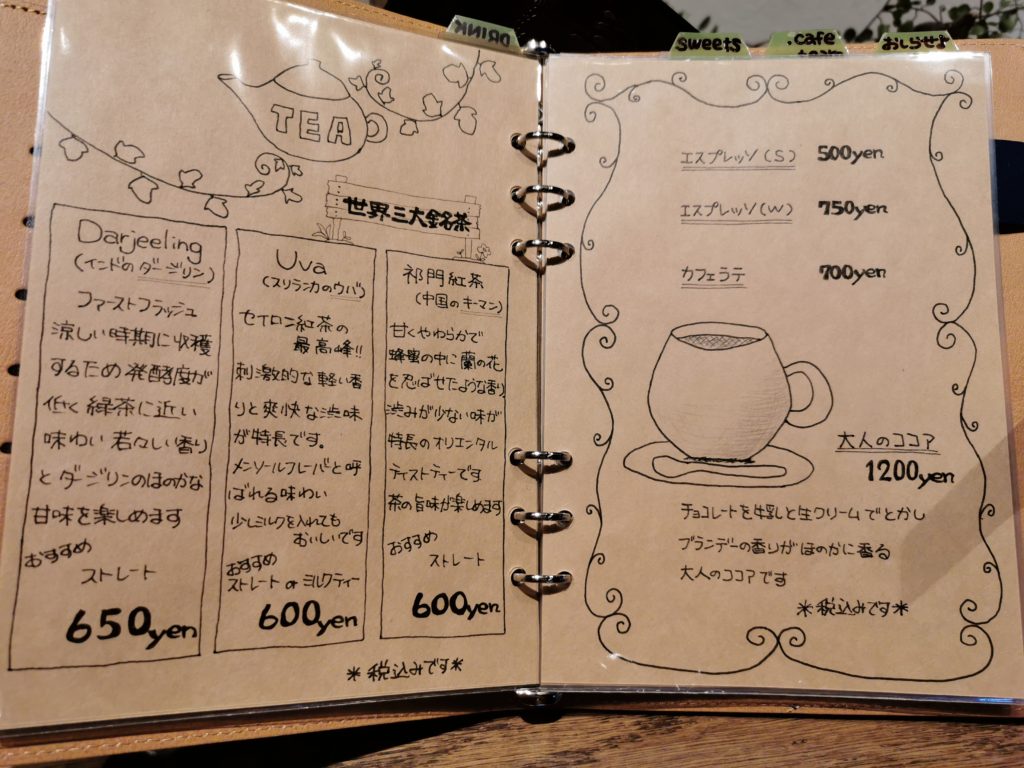 DRINK
TEA
世界三大銘茶
Darjeeling
(インドのダージリン)
ファーストフラッシュ
涼しい時期に収穫
するため発酵度が
低く緑茶に近い
味わい若々しい香り
とダージリンのほのかな
甘味を楽しめます
おすすめ
ストレート
650yen
Uva
(スリランカのウバ)
セイロン紅茶の
最高峰!!
刺激的な軽い香
りと爽快な渋味
が特長です。
メンソールフレーバと呼
ばれる味わい
少しミルクを入れても
おいしいです
おすすめ
ストレート or ミルクティー
600yen
祁門紅茶
(中国のキーマン)
甘くやわらかで
蜂蜜の中に蘭の花
を忍ばせたような香り
渋みが少ない味が
特長のオリエンタル
テイストティーです
茶の旨味が楽しめます
おすすめ
ストレート
600yen
*税込みです*
sweets
.cafe
おしらせ♪
エスプレッソ(S) 500yen
エスプレッソ(W) 750yen
カフェラテ 700yen
大人のココア
1200yen
チョコレートを牛乳と生クリームでとかし
ブランデーの香りがほのかに香る
大人のココアです
*税込みです*